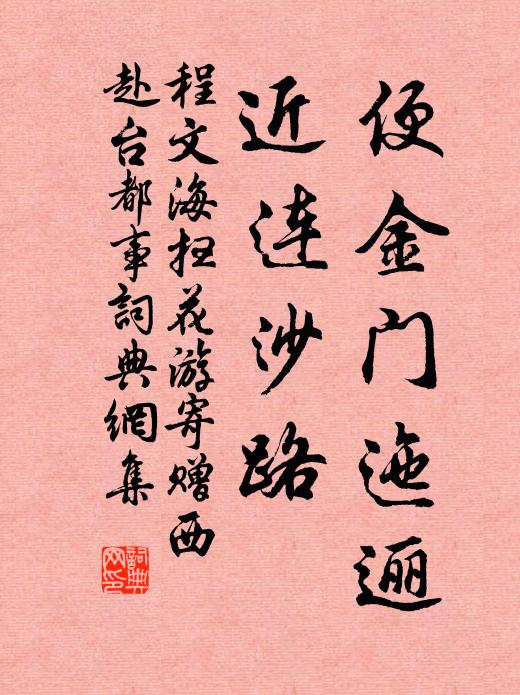 便金门迤逦
近连沙路
程文海扫花游寄赠西
赴台都事詞典網集
詞典网印